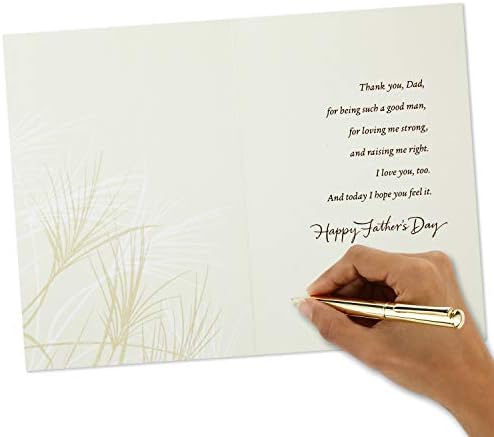 Thank you, Dad,
for being such a good man,
for loving me strong,
and raising me right.
I love you, too.
And today I hope you feel it.
Happy Father's Day